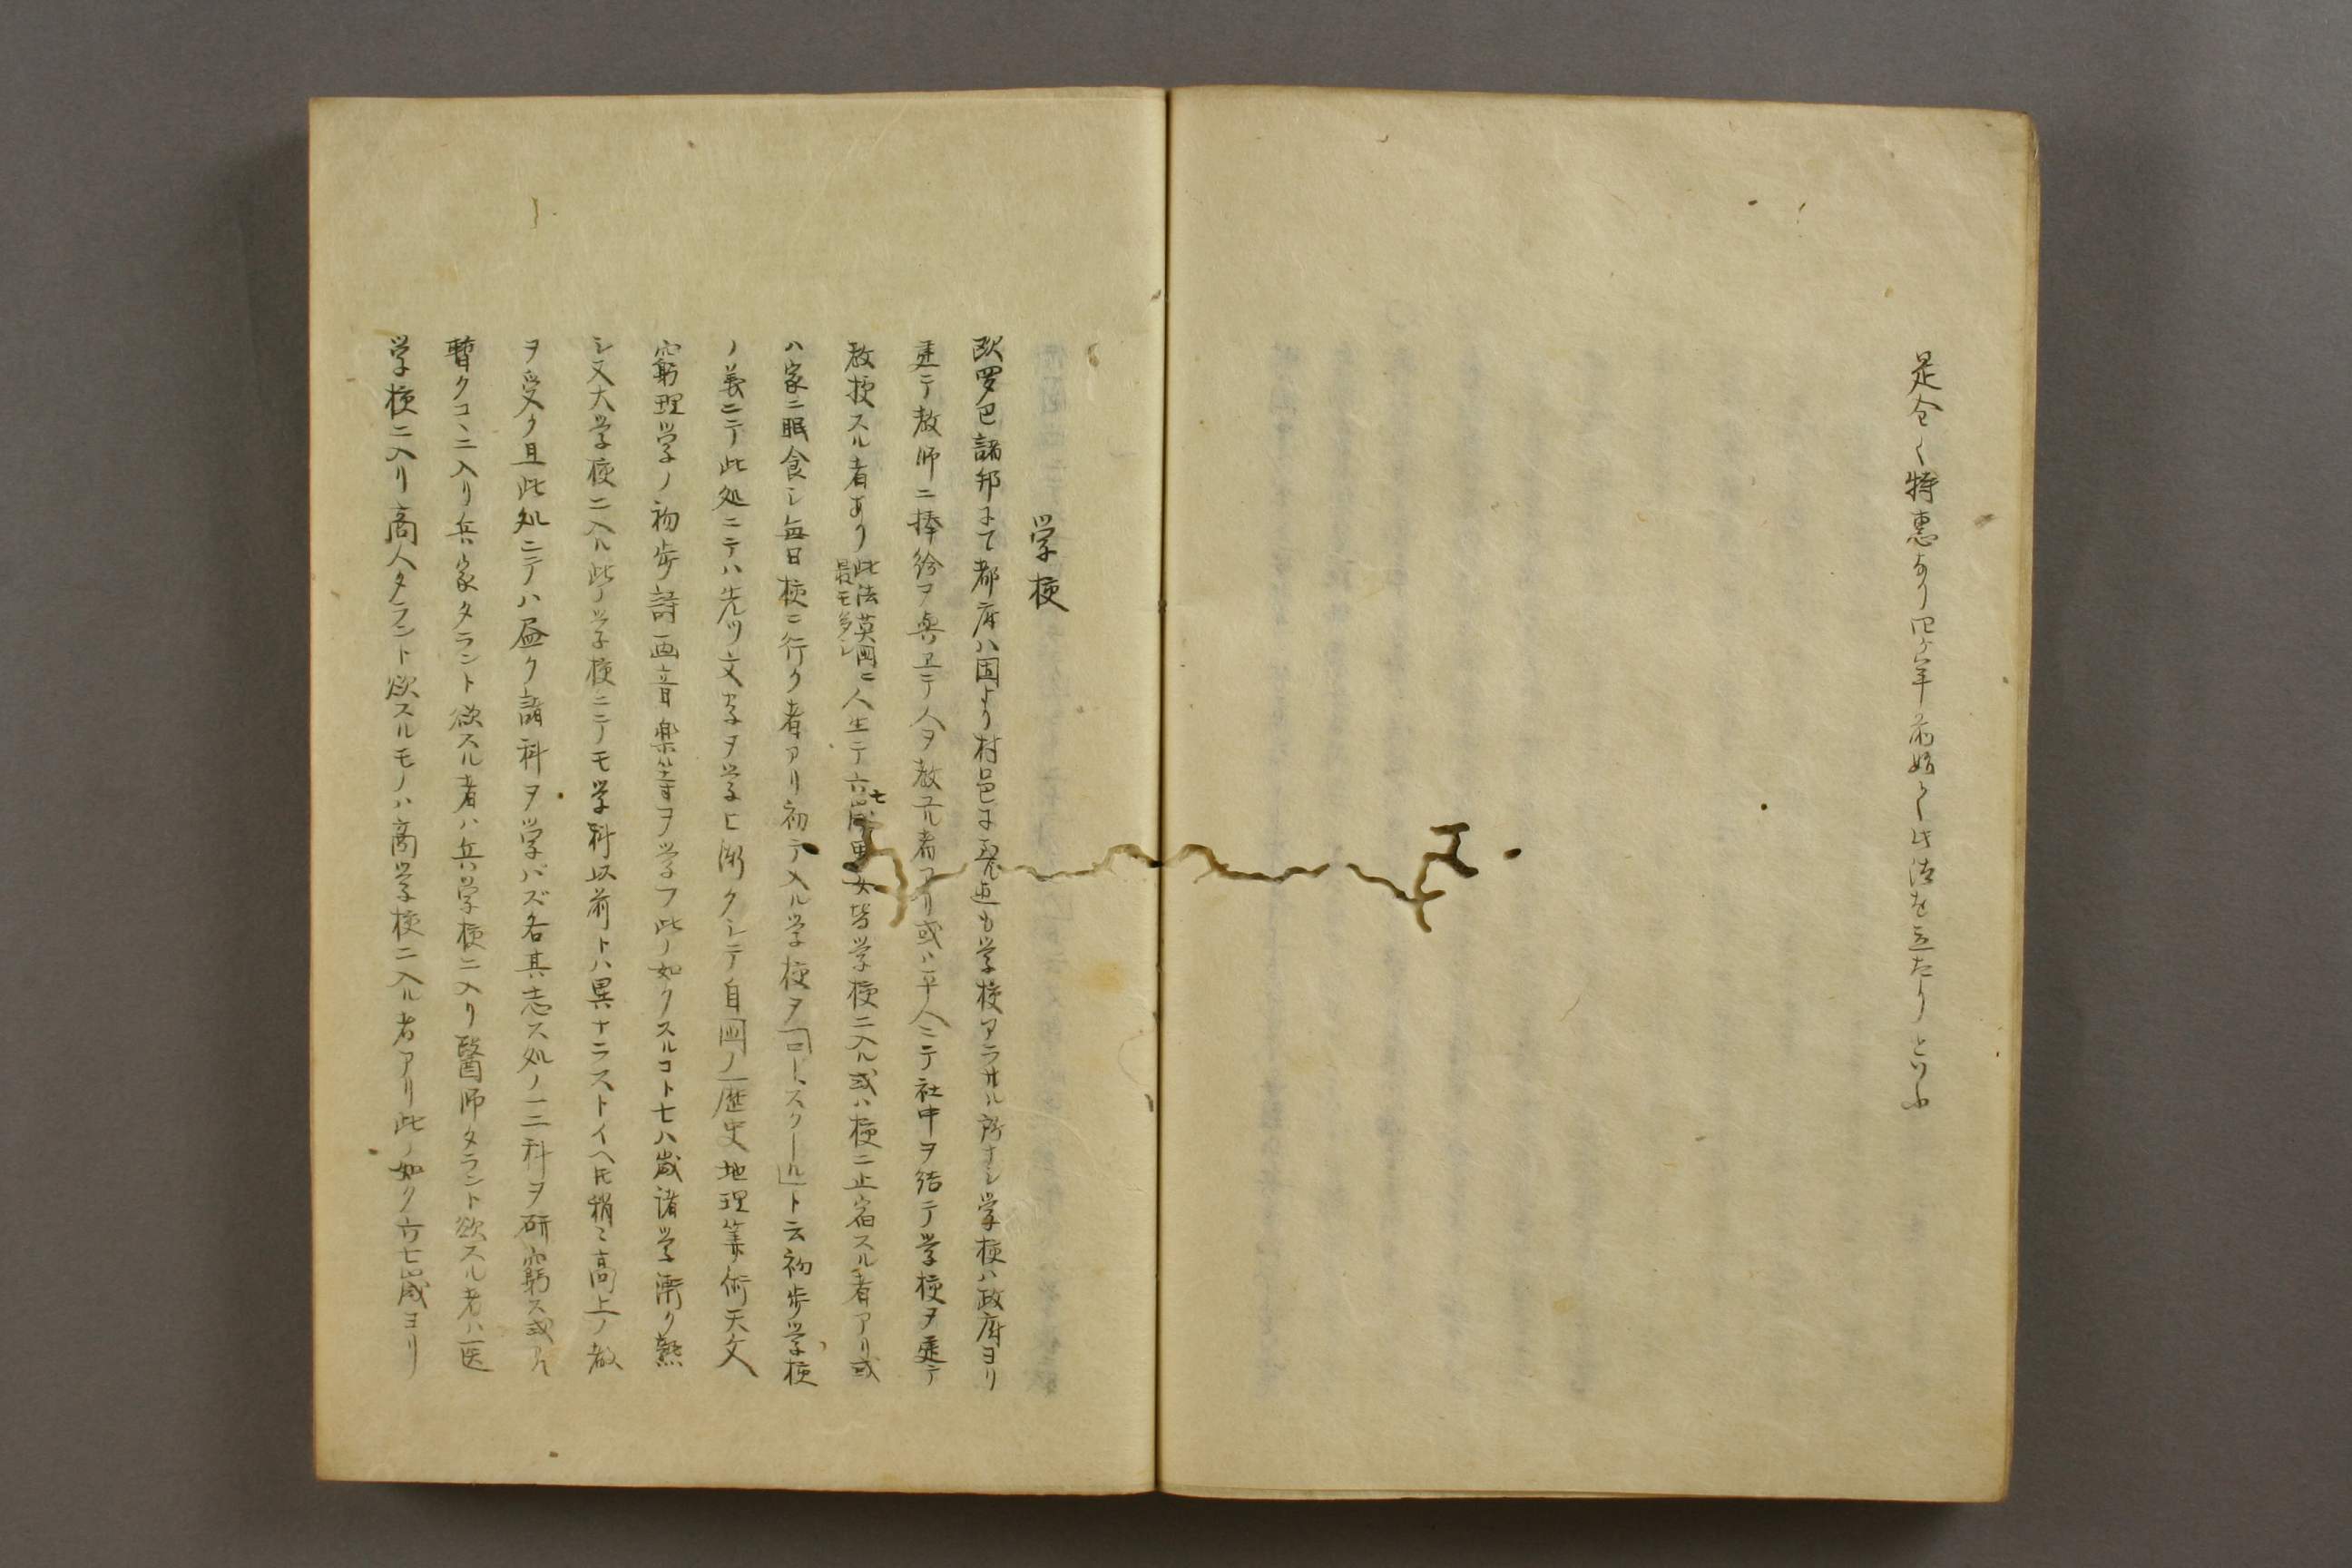 是全く特恵なり四ケ年前始て此法を立たりといふ
学校
欧羅巴諸邦にて都府ハ固より村邑に至迄も学校アラサル所ナシ学校ハ政府ヨリ
建テ教師ニ捧給ヲ與ヱテ人ヲ教ユル者アリ或ハ平人ニテ社中ヲ結テ学校ヲ建テ
教授スル者あり此法英国ニ最モ多シ人生テ六七歳男女皆学校ニ入ル或ハ校ニ止宿スル者アリ或
ハ家ニ眠食シ毎日校ニ行ク者アリ初テ入ル学校ヲ「コートスクール」ト云初歩学校
ノ義ニテ此処ニテハ先ツ文字ヲ学ヒ漸クシテ自国ノ歴史地理筭術天文
窮理学ノ初歩詩画音楽等ヲ学フ此ノ如クスルコト七八歳諸学漸ク熟
シ又大学校ニ入ル此ノ学校ニテモ学科以前トハ異ナラストイヘ𪜈稍〻高上ノ教
ヲ受ク且此処ニテハ尽ク諸科ヲ学バズ各其志ス処ノ一二科ヲ研窮ス或ハ
暫クコヽニ入リ兵家タラント欲スル者ハ兵学校ニ入リ醫師タラント欲スル者ハ医
学校ニ入リ商人タラント欲スルモノハ商学校ニ入ル者アリ此ノ如ク六七歳ヨリ